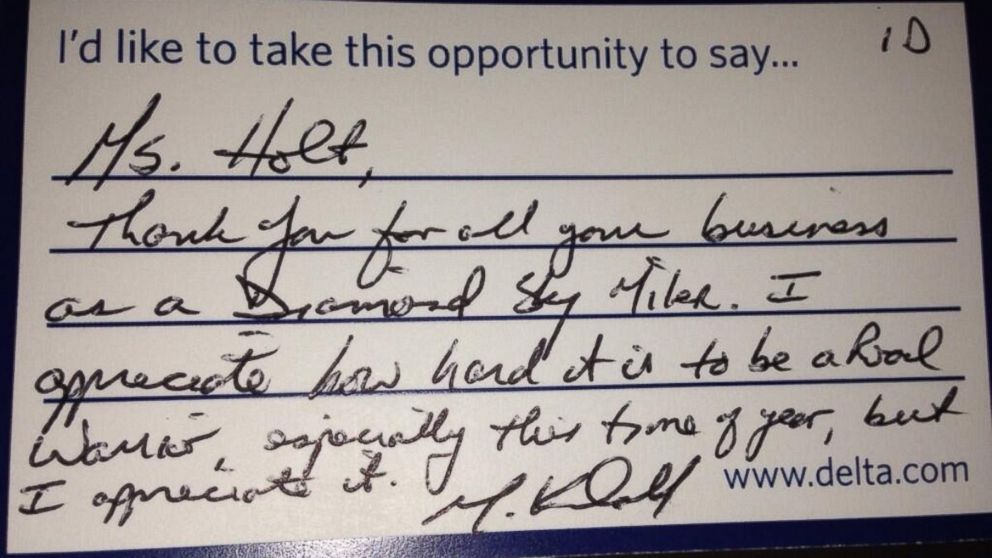 I'd like to take this opportunity to say... 1D
Ms. Holt,
Thank you for all your business
as a Diamond Sky Miler. I
appreciate how hard it is to be a Road
Warrior, especially this time of year, but
I appreciate it. M.
www.delta.com